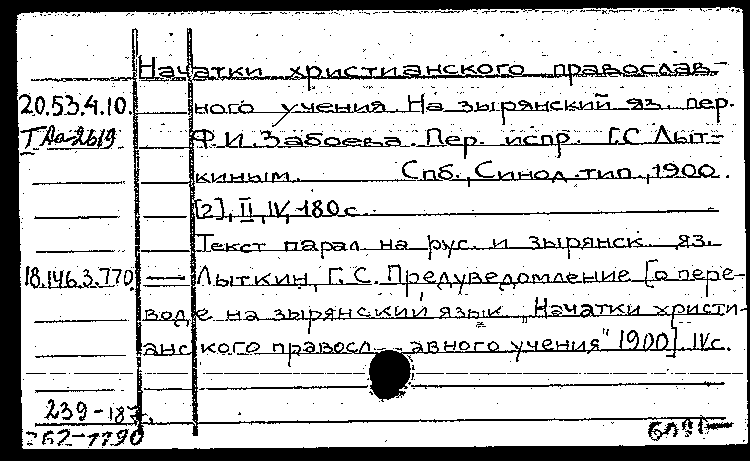 Начатки христианского православ-
20.53.4.10. ного учения. На зырянский яз. пер.
Ф.И. Забоева. Пер. испр. Г.С Лыт-
киным. Спб., Синод. тип., 1900.
[2], II, IV, 180 с.
Текст парал. на рус. и зырянск. яз.
18.146.3.770. — Лыткин, Г.С. Предуведомление [о пере-
воде на зырянский язык „Начатки христи-
анского правосл- авного учения" 1900] IV с.
239-187.
262-7790